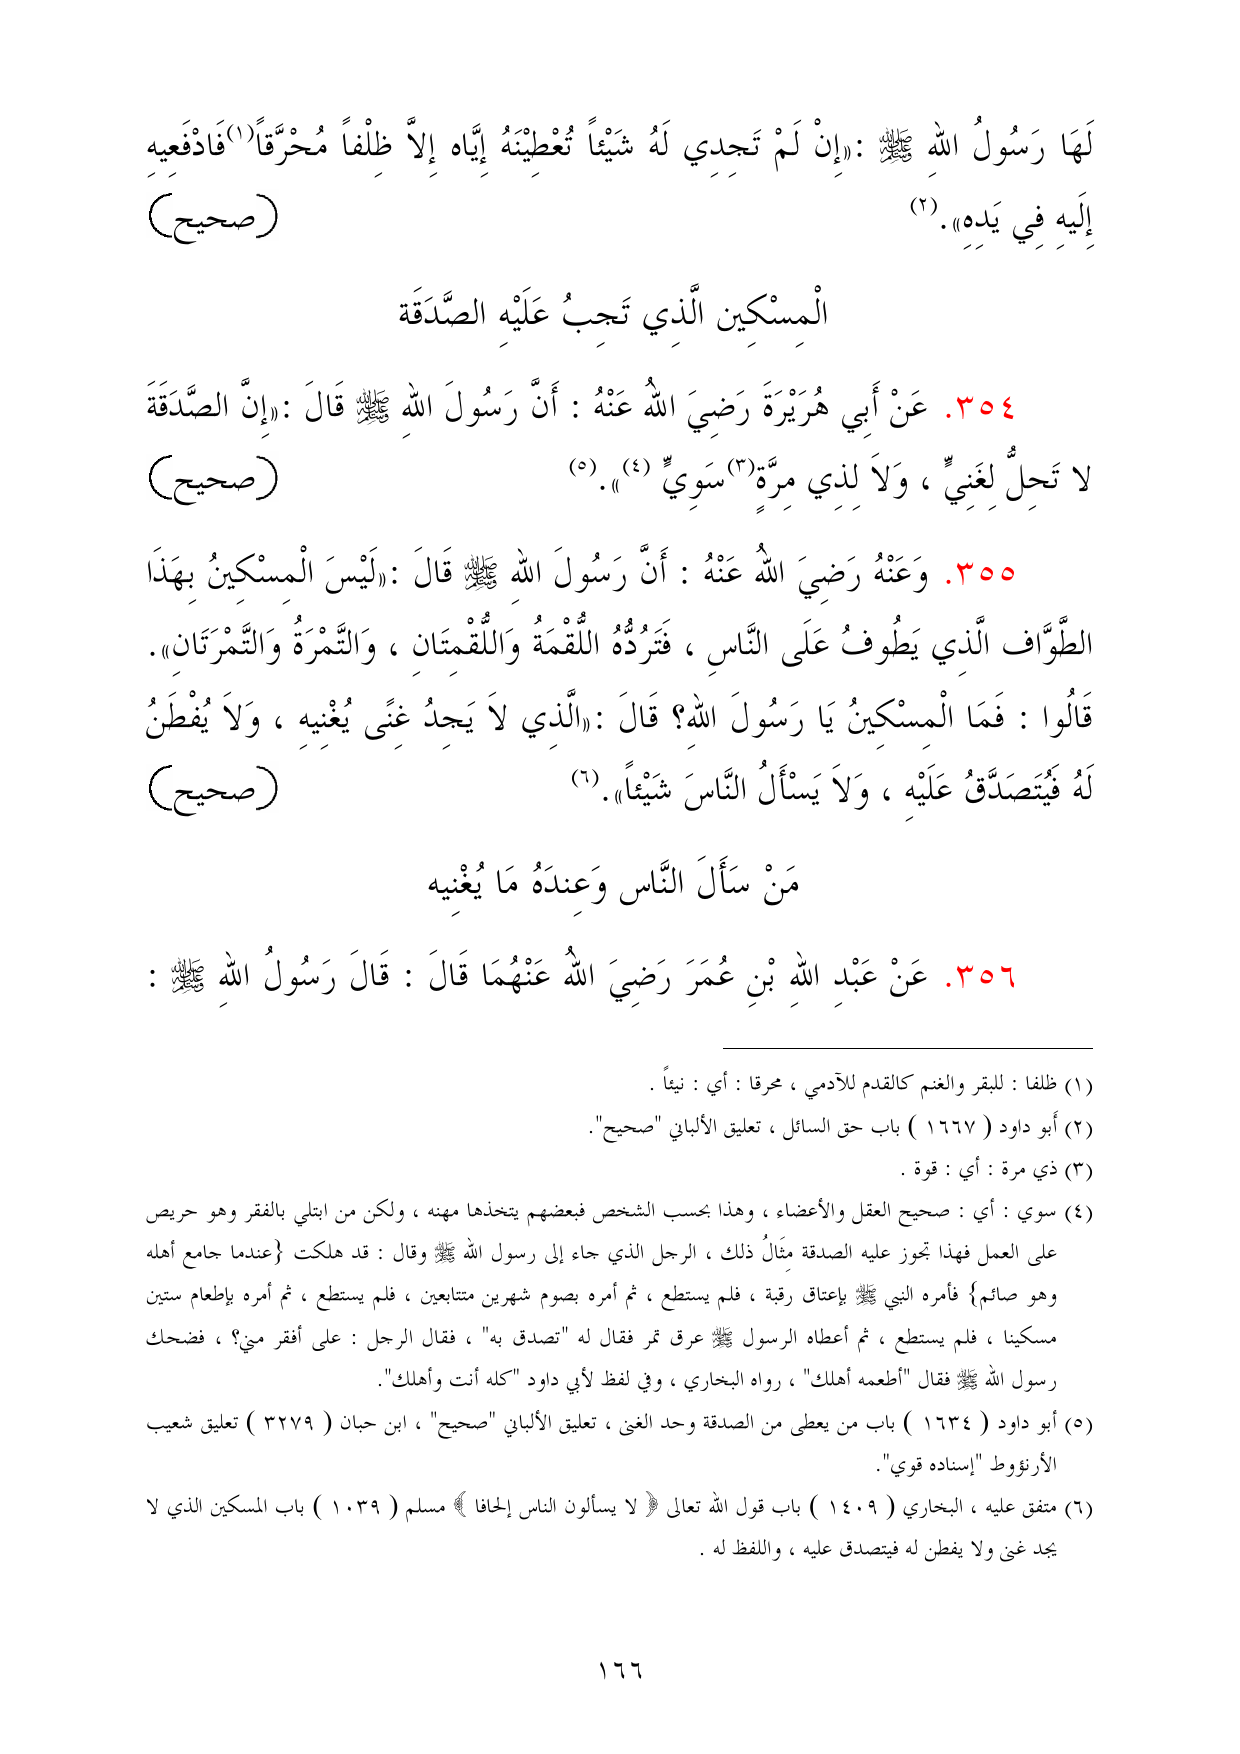 لَهَا رَسُولُ اللهِ ﷺ :«إِنْ لَمْ تَجِدِي لَهُ شَيْئاً تُعْطِيْنَهُ إِيَّاه إِلاَّ ظِلْفاً مُحْرَّقاً(١)فَادْفَعِيهِ
إِلَيهِ فِي يَدِهِ».(٢) (صحيح)
الْمِسْكِين الَّذِي تَجِبُ عَلَيْهِ الصَّدَقَة
٣٥٤. عَنْ أَبي هُرَيْرَةَ رَضِيَ اللهُ عَنْهُ : أَنَّ رَسُولَ اللهِ ﷺ قَالَ :«إِنَّ الصَّدَقَةَ
لا تَحِلُّ لِغَنِيٍّ ، وَلاَ لِذِي مِرَّةٍ(٣)سَوِيٍّ (٤)».(٥) (صحيح)
٣٥٥. وَعَنْهُ رَضِيَ اللهُ عَنْهُ : أَنَّ رَسُولَ اللهِ ﷺ قَالَ :«لَيْسَ الْمِسْكِينُ بِهَذَا
الطَّوَّاف الَّذِي يَطُوفُ عَلَى النَّاسِ ، فَتَرُدُّهُ اللُّقْمَةُ وَاللُّقْمِتَانِ ، وَالتَّمْرَةُ وَالتَّمْرَتَانِ».
قَالُوا : فَمَا الْمِسْكِينُ يَا رَسُولَ اللهِ؟ قَالَ :«الَّذِي لاَ يَجِدُ غِنًى يُغْنِيهِ ، وَلاَ يُفْطَنُ
لَهُ فَيُتَصَدَّقُ عَلَيْهِ ، وَلاَ يَسْأَلُ النَّاسَ شَيْئاً».(٦) (صحيح)
مَنْ سَأَلَ النَّاس وَعِندَهُ مَا يُغْنِيه
٣٥٦. عَنْ عَبْدِ اللهِ بْنِ عُمَرَ رَضِيَ اللهُ عَنْهُمَا قَالَ : قَالَ رَسُولُ اللهِ ﷺ :
(١) ظلفا : للبقر والغنم كالقدم للآدمي ، محرقا : أي : نيئاً .
(٢) أَبو داود ( ١٦٦٧ ) باب حق السائل ، تعليق الألباني "صحيح".
(٣) ذي مرة : أي : قوة .
(٤) سوي : أي : صحيح العقل والأعضاء ، وهذا بحسب الشخص فبعضهم يتخذها مهنه ، ولكن من ابتلي بالفقر وهو حريص
على العمل فهذا تجوز عليه الصدقة مِثَالُ ذلك ، الرجل الذي جاء إلى رسول الله ﷺ وقال : قد هلكت {عندما جامع أهله
وهو صائم} فأمره النبي ﷺ بإعتاق رقبة ، فلم يستطع ، ثم أمره بصوم شهرين متتابعين ، فلم يستطع ، ثم أمره بإطعام ستين
مسكينا ، فلم يستطع ، ثم أعطاه الرسول ﷺ عرق تمر فقال له "تصدق به" ، فقال الرجل : على أفقر مني؟ ، فضحك
رسول الله ﷺ فقال "أطعمه أهلك" ، رواه البخاري ، وفي لفظ لأبي داود "كله أنت وأهلك".
(٥) أبو داود ( ١٦٣٤ ) باب من يعطى من الصدقة وحد الغنى ، تعليق الألباني "صحيح" ، ابن حبان ( ٣٢٧٩ ) تعليق شعيب
الأرنؤوط "إسناده قوي".
(٦) متفق عليه ، البخاري ( ١٤٠٩ ) باب قول الله تعالى ﴿ لا يسألون الناس إلحافا ﴾ مسلم ( ١٠٣٩ ) باب المسكين الذي لا
يجد غنى ولا يفطن له فيتصدق عليه ، واللفظ له .
١٦٦